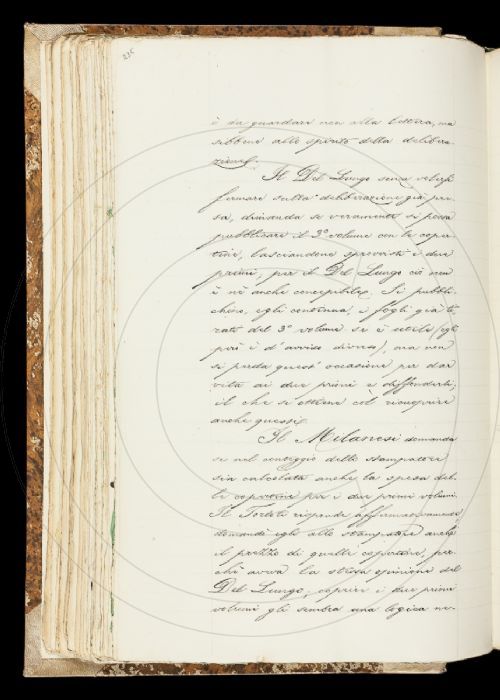 è da guardare non alla lettera, ma
sibbene allo spirito della delibera-
zione.
Il Del Lungo senza volersi
fermare sulla deliberazione già pre-
sa, dimanda se veramente si possa
pubblicare il 3º volume con le coper-
tine, lasciandone sprovvisti i due
primi; per il Del Lungo ciò non
è nè anche concepibile. Si pubbli-
chino, egli continua, i fogli già ti-
rati del 3º volume se è utile (egli
però è d'avviso diverso), ma non
si perda quest'occasione per dar
vita ai due primi e diffonderli,
il che si ottiene col ricuoprire
anche questi.
Il Milanesi domanda
se nel conteggio dello stampatore
sia calcolata anche la spesa del-
le copertine per i due primi volumi.
Il Tortoli risponde affermativamente;
domandò egli allo stampatore anche
il prezzo di quelle copertine, per-
chè aveva la stessa opinione del
Del Lungo; coprire i due primi
volumi gli sembra una logica ne-